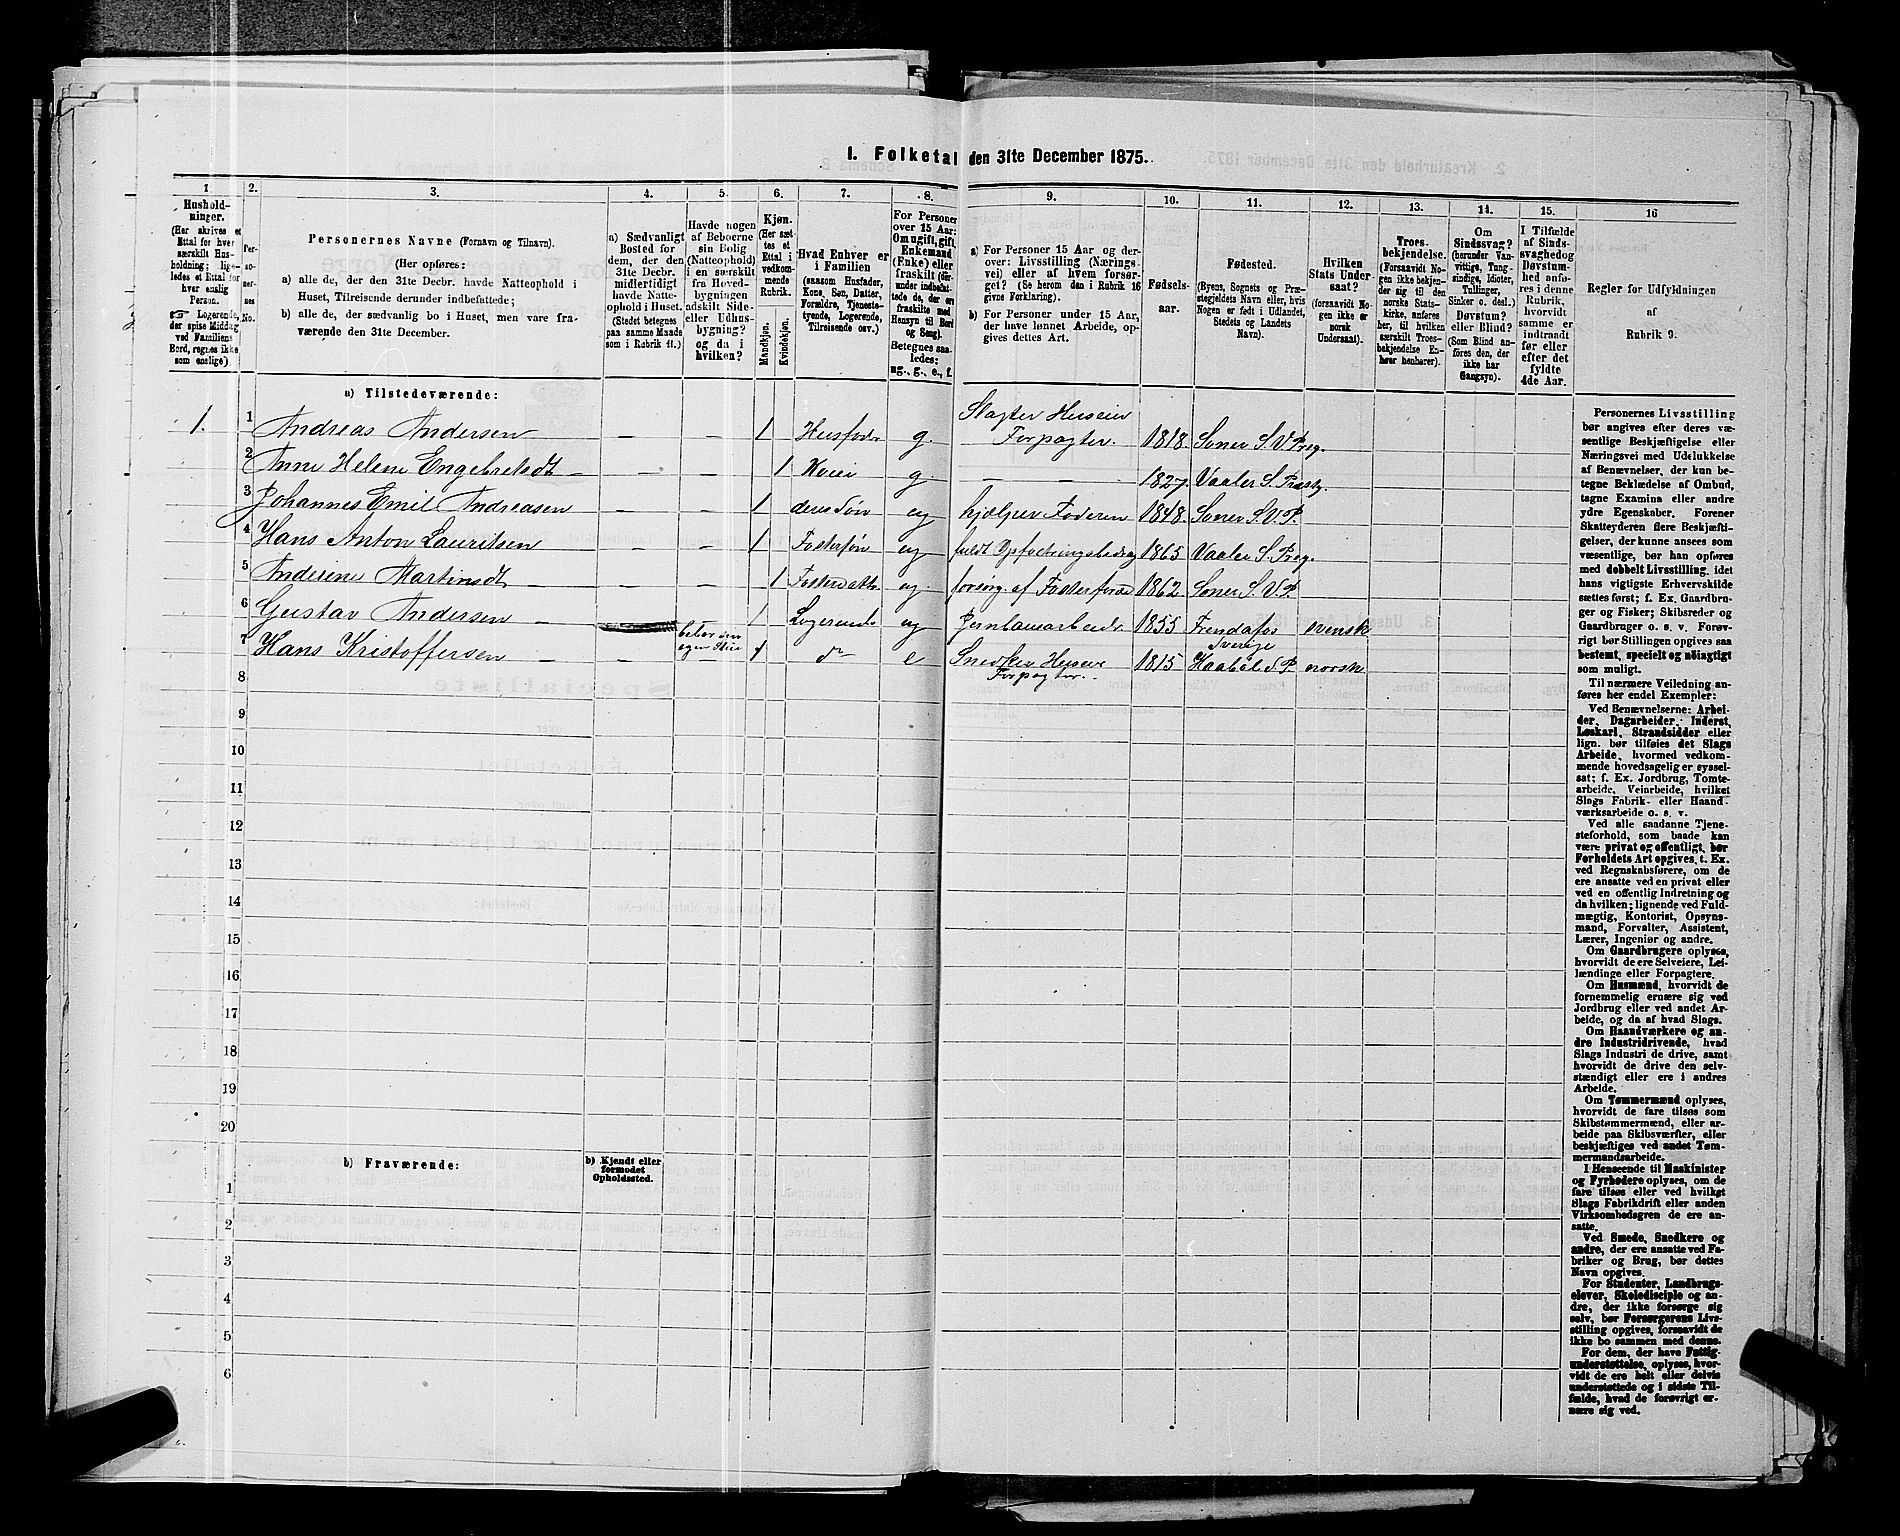 I. Folketal den 31te December 1875.
1. 2. 3. 4. 5. 6. 7. 8. 9. 10. 11. 12. 13. 14. 15. 16
Hushold-
ninger.
(Her skrives et
Ettal for hver
særskilt Hus-
holdning; lige-
ledes et Ettal for
hver enslig
Person.
☞ Logerende,
der spise Middag
ved Familiens
Bord, regnes ikke
som enslige).
Per-
so-
ner-
nes
No.
Personernes Navne (Fornavn og Tilnavn).
(Her opføres:
a) alle de, der den 31te Decbr. havde Natteophold i
Huset, Tilreisende derunder indbefattede;
b) alle de, der sædvanlig bo i Huset, men vare fra-
værende den 31te December.
a) Sædvanligt
Bosted for
dem, der den
31te Decbr.
midlertidigt
havde Natte-
ophold i Huset.
(Stedet betegnes
paa samme Maade
som i Rubrik 11.)
Havde nogen
af Beboerne
sin Bolig
(Natteophold)
i en særskilt
fra Hoved-
bygningen
adskilt Side-
eller Udhus-
bygning?
og da i
hvilken?
Kjøn.
(Her sæt-
tes et
Ettal i
vedkom-
mende
Rubrik.
Mandkjøn.
Kvindekjøn.
Hvad Enhver er
i Familien
(saasom Husfader,
Kone, Søn, Datter,
Forældre, Tjeneste-
tyende, Logerende,
Tilreisende osv.)
For Personer
over 15 Aar:
Om ugift, gift,
Enkemand
(Enke) eller
fraskilt (der-
under indbefat-
tede de, der ere
fraskilte med
Hensyn til Bord
og Seng).
Betegnes saa-
ledes:
ug., g., e., f.
a) For Personer 15 Aar og der-
over: Livsstilling (Nærings-
vei) eller af hvem forsør-
get? (Se herom den i Rubrik 16
givne Forklaring).
b) For Personer under 15 Aar,
der have lønnet Arbeide, op-
gives dettes Art.
Fødsels-
aar.
Fødested.
(Byens, Sognets og Præ-
stegjeldets Navn eller, hvis
Nogen er født i Udlandet,
Stedets og Landets
Navn).
Hvilken
Stats Under-
saat?
(forsaavidt No-
gen ikke er
norsk
Undersaat).
Troes-
bekjendelse.
(Forsaavidt No-
gen ikke bekjen-
der sig til den
norske Stats-
kirke, anføres
her, til hvilken
særskilt Troes-
bekjendelse En-
hver henhører).
Om
Sindssvag?
(herunder Van-
vittige, Tung-
sindige, Idioter,
Tullinger,
Sinker o. desl.)
Døvstum?
eller Blind?
(Som Blind an-
føres den, der
ikke har
Gangsyn).
I Tilfælde
af Sinds-
svaghed og
Døvstum-
hed anfø-
res i denne
Rubrik,
hvorvidt
samme er
indtraadt
før eller
efter det
fyldte
4de Aar.
Regler for Udfyldningen
af
Rubrik 9.
a) Tilstedeværende:
Slagter Huseier
1. 1 Andreas Andersen — — 1 Husfader g. Forpagter. 1818. Soner S. V. Preg.
2 Anne Helene Engebretsdt — — — 1 Kone g — — 1827. Vaaler S. Præstg.
3 Johannes Emil Andreasen — — 1 deres Søn ug hjælper Faderen 1848. Soner S. V. P.
4 Hans Anton Lauritsen — — 1 Fostersøn ug 1865 Vaaler S. Preg.
5 Anderine Martinsdt — — — 1 Fosterdatter ug forsørg af Fosterforæ 1862 Soner S. V. P.
6 Gustav Andersen — 1 Logerende ug Jernbanearbeider 1855 svensk
Sverige
7 Hans Kristoffersen — — — 1 do e Snedker Huseier 1815 Haabøl S. P. norsk
Forpagter.
8
9
10
11
12
13
14
15
16
17
18
19
20
b) Fraværende:
b) Kjendt eller
formodet
Opholdssted.
1
2
3
4
5
6
Personernes Livsstilling
bør angives efter deres væ-
sentlige Beskjæftigelse eller
Næringsvei med Udelukkelse
af Benævnelser, der kun be-
tegne Beklædelse af Ombud,
tagne Examina eller andre
ydre Egenskaber. Forener
Skatteyderen flere Beskjæfti-
gelser, der kunne ansees som
væsentlige, bør han opføres
med dobbelt Livsstilling, idet
hans vigtigste Erhvervskilde
sættes først; f. Ex. Gaardbru-
ger og Fisker; Skibsreder og
Gaardbruger o. s. v. Forøv-
rigt bør Stillingen opgives saa
bestemt, specielt og nøiagtigt
som muligt.
Til nærmere Veiledning an-
føres her endel Exempler:
Ved Benævnelserne: Arbei-
der, Dagarbeider, Inderst,
Løskarl, Strandsidder eller
lign. bør tilføies det Slags
Arbeide, hvormed vedkom-
mende hovedsagelig er syssel-
sat; f. Ex. Jordbrug, Tomte-
arbeide, Veiarbeide, hvilket
Slags Fabrik- eller Haand-
værksarbeide o. s. v.
Ved alle saadanne Tjene-
steforhold, som baade kan
være privat og offentligt, bør
Forholdets Art opgives, t. Ex.
ved Regnskabsførere, om de
ere ansatte ved en privat eller
ved en offentlig Indretning og
da hvilken; lignende ved Fuld-
mægtig, Kontorist, Opsyns-
mand, Forvalter, Assistent,
Lærer, Ingeniør og andre.
Om Gaardbrugere oplyses,
hvorvidt de ere Selveiere, Lei-
lændinge eller Forpagtere.
Om Husmænd, hvorvidt de
fornemmelig ernære sig ved
Jordbrug eller ved andet Ar-
beide, og da af hvad Slags.
Om Haandværkere og an-
dre Industridrivende, hvad
Slags Industri de drive, samt
hvorvidt de drive den selv-
stændigt eller ere i andres
Arbeide.
Om Tømmermænd oplyses,
hvorvidt de fare tilsøs som
Skibstømmermænd, eller ar-
beide paa Skibsværfter, eller
beskjæftiges ved andet Tøm-
mermandsarbeide.
I Henseende til Maskinister
og Fyrbødere oplyses, om de
fare tilsøs eller ved hvilket
Slags Fabrikdrift eller anden
Virksomhedsgren de ere an-
satte.
Ved Smede, Snedkere og
andre, der ere ansatte ved Fa-
briker og Brug, bør dettes
Navn opgives.
For Studenter, Landbrugs-
elever, Skoledisciple og an-
dre, der ikke forsørge sig
selv, bør Forsørgerens Livs-
stilling opgives, forsaavidt de
ikke bo sammen med denne.
For dem, der have Fattig-
understøttelse, oplyses, hvor-
vidt de ere helt eller delvis
understøttede og i sidste Til-
fælde, hvad de forøvrigt er-
nære sig ved.